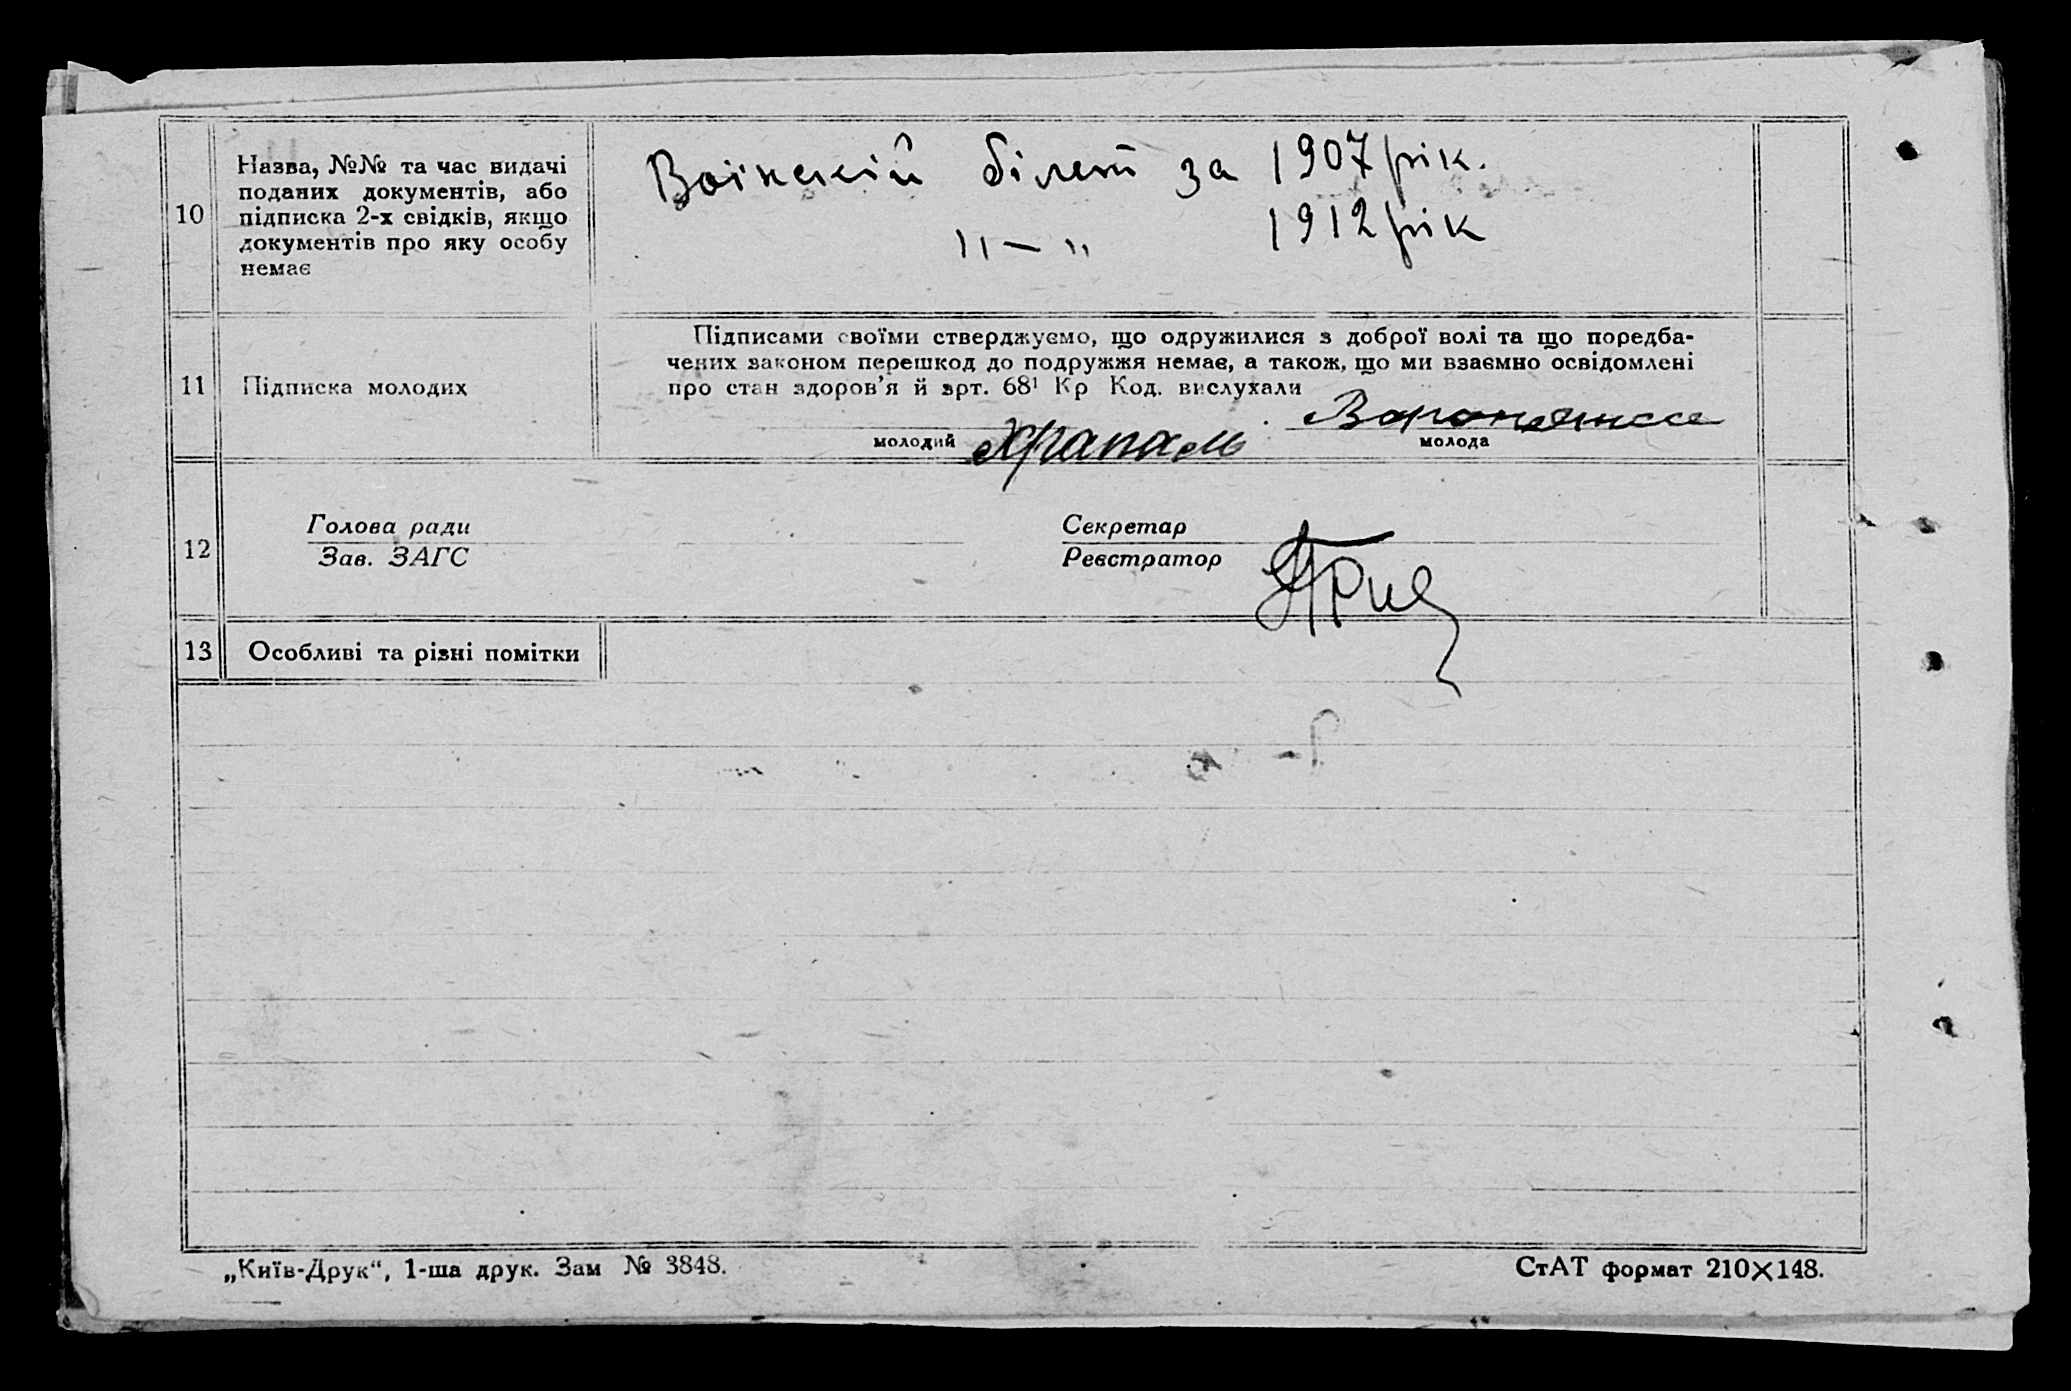 10
Назва, №№ та час видачі
поданих документів, або
підписка 2-х свідків, якщо
документів про яку особу
немає
Воінскій білет за 1907 рік.
"—" 1912 рік
11
Підписка молодих
Підписами своїми стверджуємо, що одружилися з доброї волі та що поредба-
чених законом перешкод до подружжя немає, а також, що ми взаємно освідомлені
про стан здоров'я й арт. 68¹ Кр Код. вислухали
молодий
молода
12
Голова ради
Зав. ЗАГС
Секретар
Реєстратор
13
Особливі та різні помітки
„Київ-Друк“, 1-ша друк. Зам № 3848.
СтАТ формат 210×148.